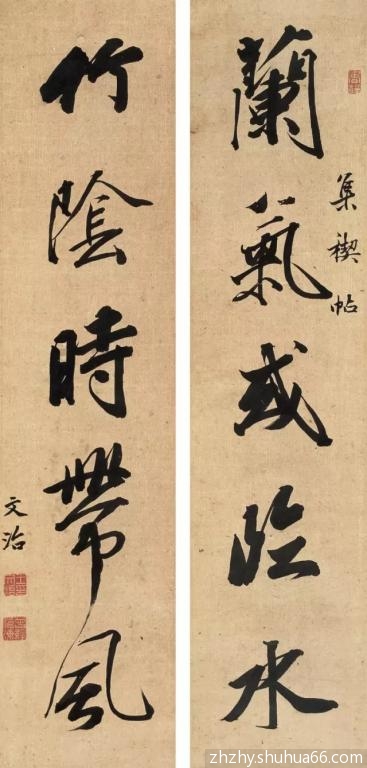 蘭氣或臨水
集禊帖
竹陰時帶風
文治
zhzhy.shuhua66.com